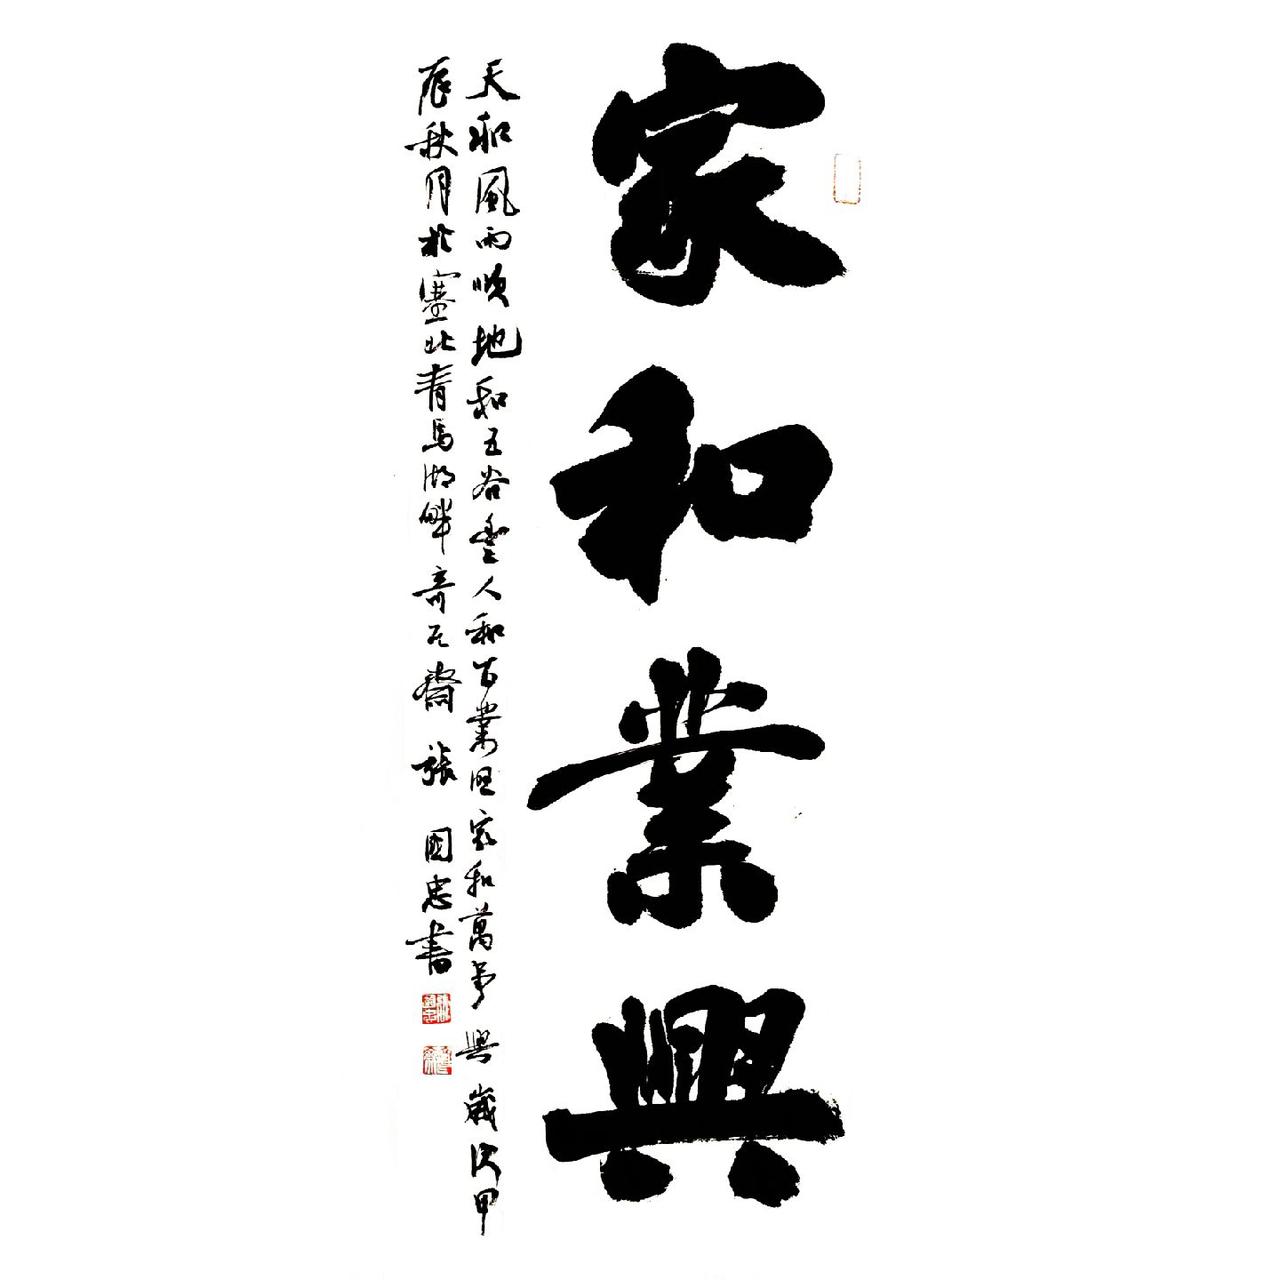 家和業興
天和風雨順地和五谷豐人和百業旺家和萬事興歲次甲
辰秋月於塞北青馬湖畔奇石齋張國忠書